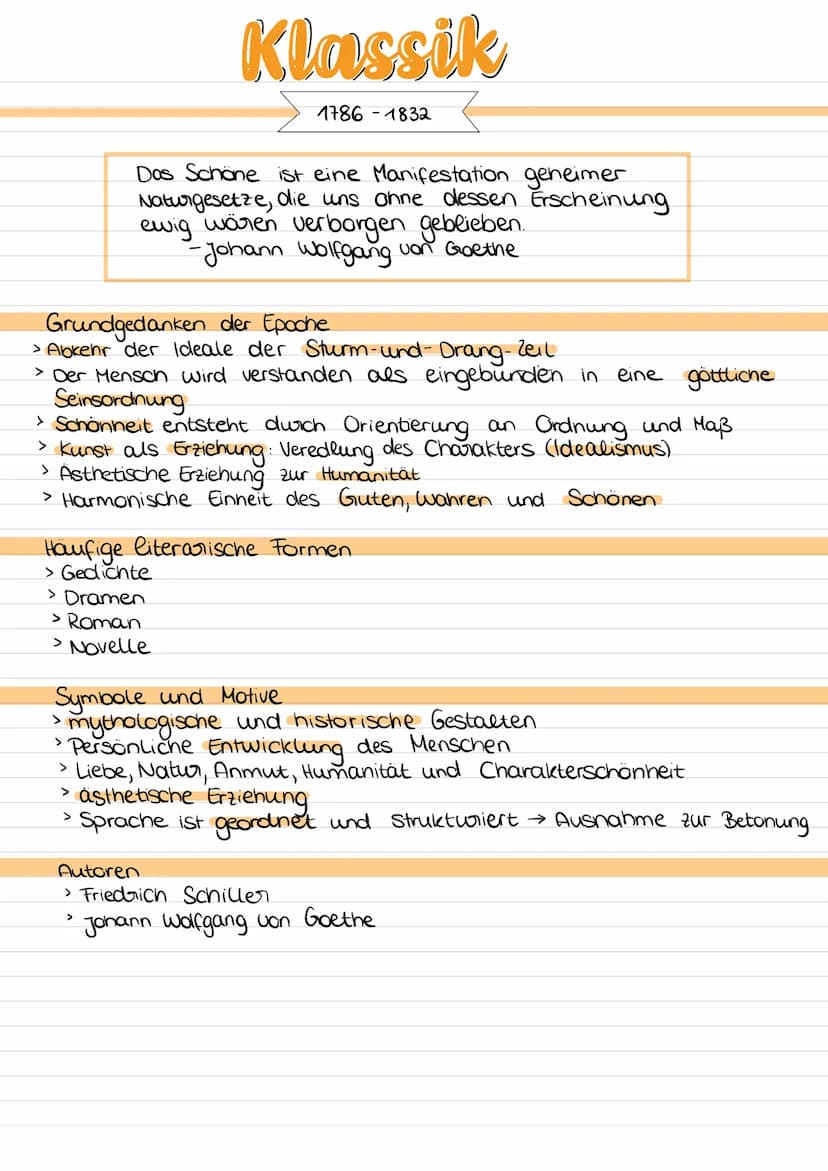 Klassik
1786 - 1832
Das Schöne ist eine Manifestation geheimer
Naturgesetze, die uns ohne dessen Erscheinung
ewig wären verborgen geblieben.
- Johann Wolfgang von Goethe
Grundgedanken der Epoche
> Abkehr der Ideale der Sturm-und-Drang-Zeit
> Der Mensch wird verstanden als eingebunden in eine göttliche
Seinsordnung
> Schönheit entsteht durch Orientierung an Ordnung und Maß
> Kunst als Erziehung: Veredlung des Charakters (Idealismus)
> Ästhetische Erziehung zur Humanität
> Harmonische Einheit des Guten, Wahren und Schönen
Häufige literarische Formen
> Gedichte
> Dramen
> Roman
> Novelle
Symbole und Motive
> mythologische und historische Gestalten
> Persönliche Entwicklung des Menschen
> Liebe, Natur, Anmut, Humanität und Charakterschönheit
> ästhetische Erziehung
> Sprache ist geordnet und strukturiert → Ausnahme zur Betonung
Autoren
> Friedrich Schiller
> Johann Wolfgang von Goethe